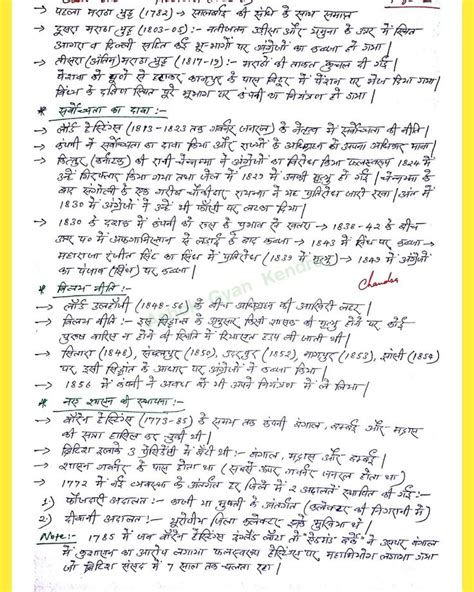 → पहला मराठा युद्ध (1782) → सालबाई की संधि के साथ समाप्त
→ दूसरा मराठा युद्ध (1803-05) :→ नतीजतन उड़ीसा और यमुना के उत्तर में स्थित
आगरा व दिल्ली सहित कई भू-भागों पर अंग्रेजों का कब्जा हो गया।
→ तीसरा (अंतिम) मराठा युद्ध (1817-19) :→ मराठों की ताकत कुचल दी गई।
पेशवा को पुणे से हटाकर कानपुर के पास बिठूर में पेंशन पर भेज दिया गया।
विंध्य के दक्षिण स्थित पूरे भूभाग पर कंपनी का नियंत्रण हो गया।
* सर्वोच्चता का दावा :-
→ लॉर्ड हेस्टिंग्स (1813-1823 तक गवर्नर जनरल) के नेतृत्व में सर्वोच्चता की नीति।
→ कंपनी ने सर्वोच्चता का दावा किया और राज्यों के अधिग्रहण को अपना अधिकार माना।
→ कित्तूर (कर्नाटक) की रानी चेन्नम्मा ने अंग्रेजों का विरोध किया फलस्वरूप 1824 में
उन्हें गिरफ्तार किया गया तथा जेल में 1829 में उनकी मृत्यु हो गई। चेन्नम्मा के
बाद संगोली के एक गरीब चौकीदार रायन्ना ने यह प्रतिरोध जारी रखा। अंत में
1830 में अंग्रेजों ने उन्हें भी फाँसी पर लटका दिया।
→ 1830 के दशक में कंपनी को रूस के प्रभाव से खतरा → 1838-42 के बीच
उत्तर प० में अफगानिस्तान से लड़ाई के बाद कब्जा → 1843 में सिंध पर कब्जा →
महाराजा रंजीत सिंह का सिंध में प्रतिरोध (1839 में मृत्यु) → 1849 में अंग्रेजों
का पंजाब (सिंध) पर कब्जा।
Chandan
Gyan Kendra
* विलय नीति :-
→ लॉर्ड डलहौजी (1848-56) के बीच अधिग्रहण की आखिरी लहर।
→ विलय नीति :- इस सिद्धांत के अनुसार किसी शासक की मृत्यु होने पर कोई
पुरुष वारिस न होने की स्थिति में रियासत हड़प ली जाती थी।
→ सतारा (1848), संबलपुर (1850), उदयपुर (1852), नागपुर (1853), झाँसी (1854)
पर इसी सिद्धांत के आधार पर अंग्रेजों ने कब्जा किया।
→ 1856 में कंपनी ने अवध को भी अपने नियंत्रण में ले लिया।
* नए शासन की स्थापना :-
→ वॉरेन हेस्टिंग्स (1773-85) के समय तक कंपनी बंगाल, बम्बई और मद्रास
की सत्ता हासिल कर चुकी थी।
→ ब्रिटिश इलाके 3 प्रेसिडेंसी में बँटी थी :- बंगाल, मद्रास और बम्बई।
→ शासन गवर्नर के पास होता था (सबसे ऊपर गवर्नर जनरल होता था)
→ 1772 में नई व्यवस्था के अंतर्गत हर जिले में 2 अदालतें स्थापित की गई :-
1) फौजदारी अदालत :- काजी या मुफ्ती के अंतर्गत (कलेक्टर की निगरानी में)
2) दीवानी अदालत :- यूरोपीय जिला कलेक्टर इसके मुखिया थे।
Note:- 1785 में जब वॉरेन हेस्टिंग्स इंग्लैंड लौटा तो "एडमंड बर्के" ने उसपर बंगाल
में कुशासन का आरोप लगाया फलस्वरूप हेस्टिंग्स पर महाभियोग लगाया गया
जो ब्रिटिश संसद में 7 साल तक चलता रहा।